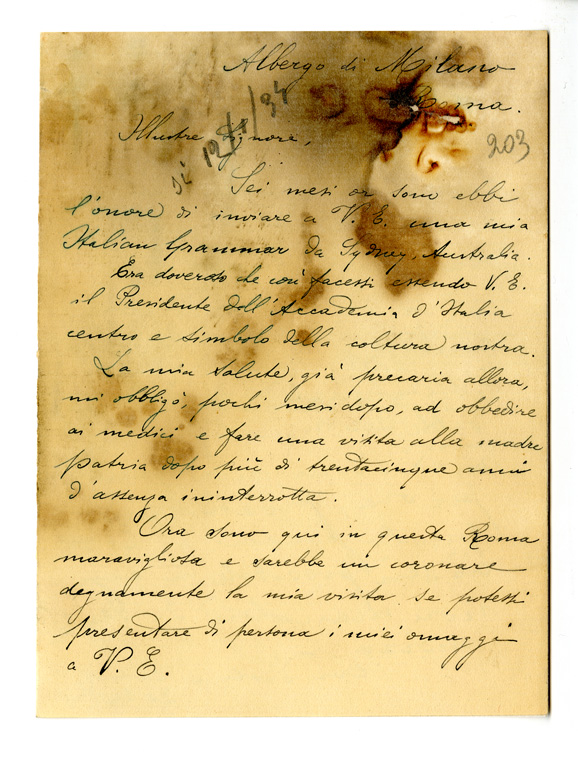 Albergo di Milano
Roma.
203
Illustre Signore,
Sei mesi or sono ebbi
l'onore di inviare a V. E. una mia
Italian Grammar da Sydney, Australia.
Era doveroso che così facessi essendo V. E.
il Presidente dell'Accademia d'Italia
centro e simbolo della coltura nostra.
La mia salute, già precaria allora,
mi obbligò, pochi mesi dopo, ad obbedire
ai medici e fare una visita alla madre
patria dopo più di trentacinque anni
d'assenza ininterrotta.
Ora sono qui in questa Roma
maravigliosa e sarebbe un coronare
degnamente la mia visita se potessi
presentare di persona i miei omaggi
a V. E.